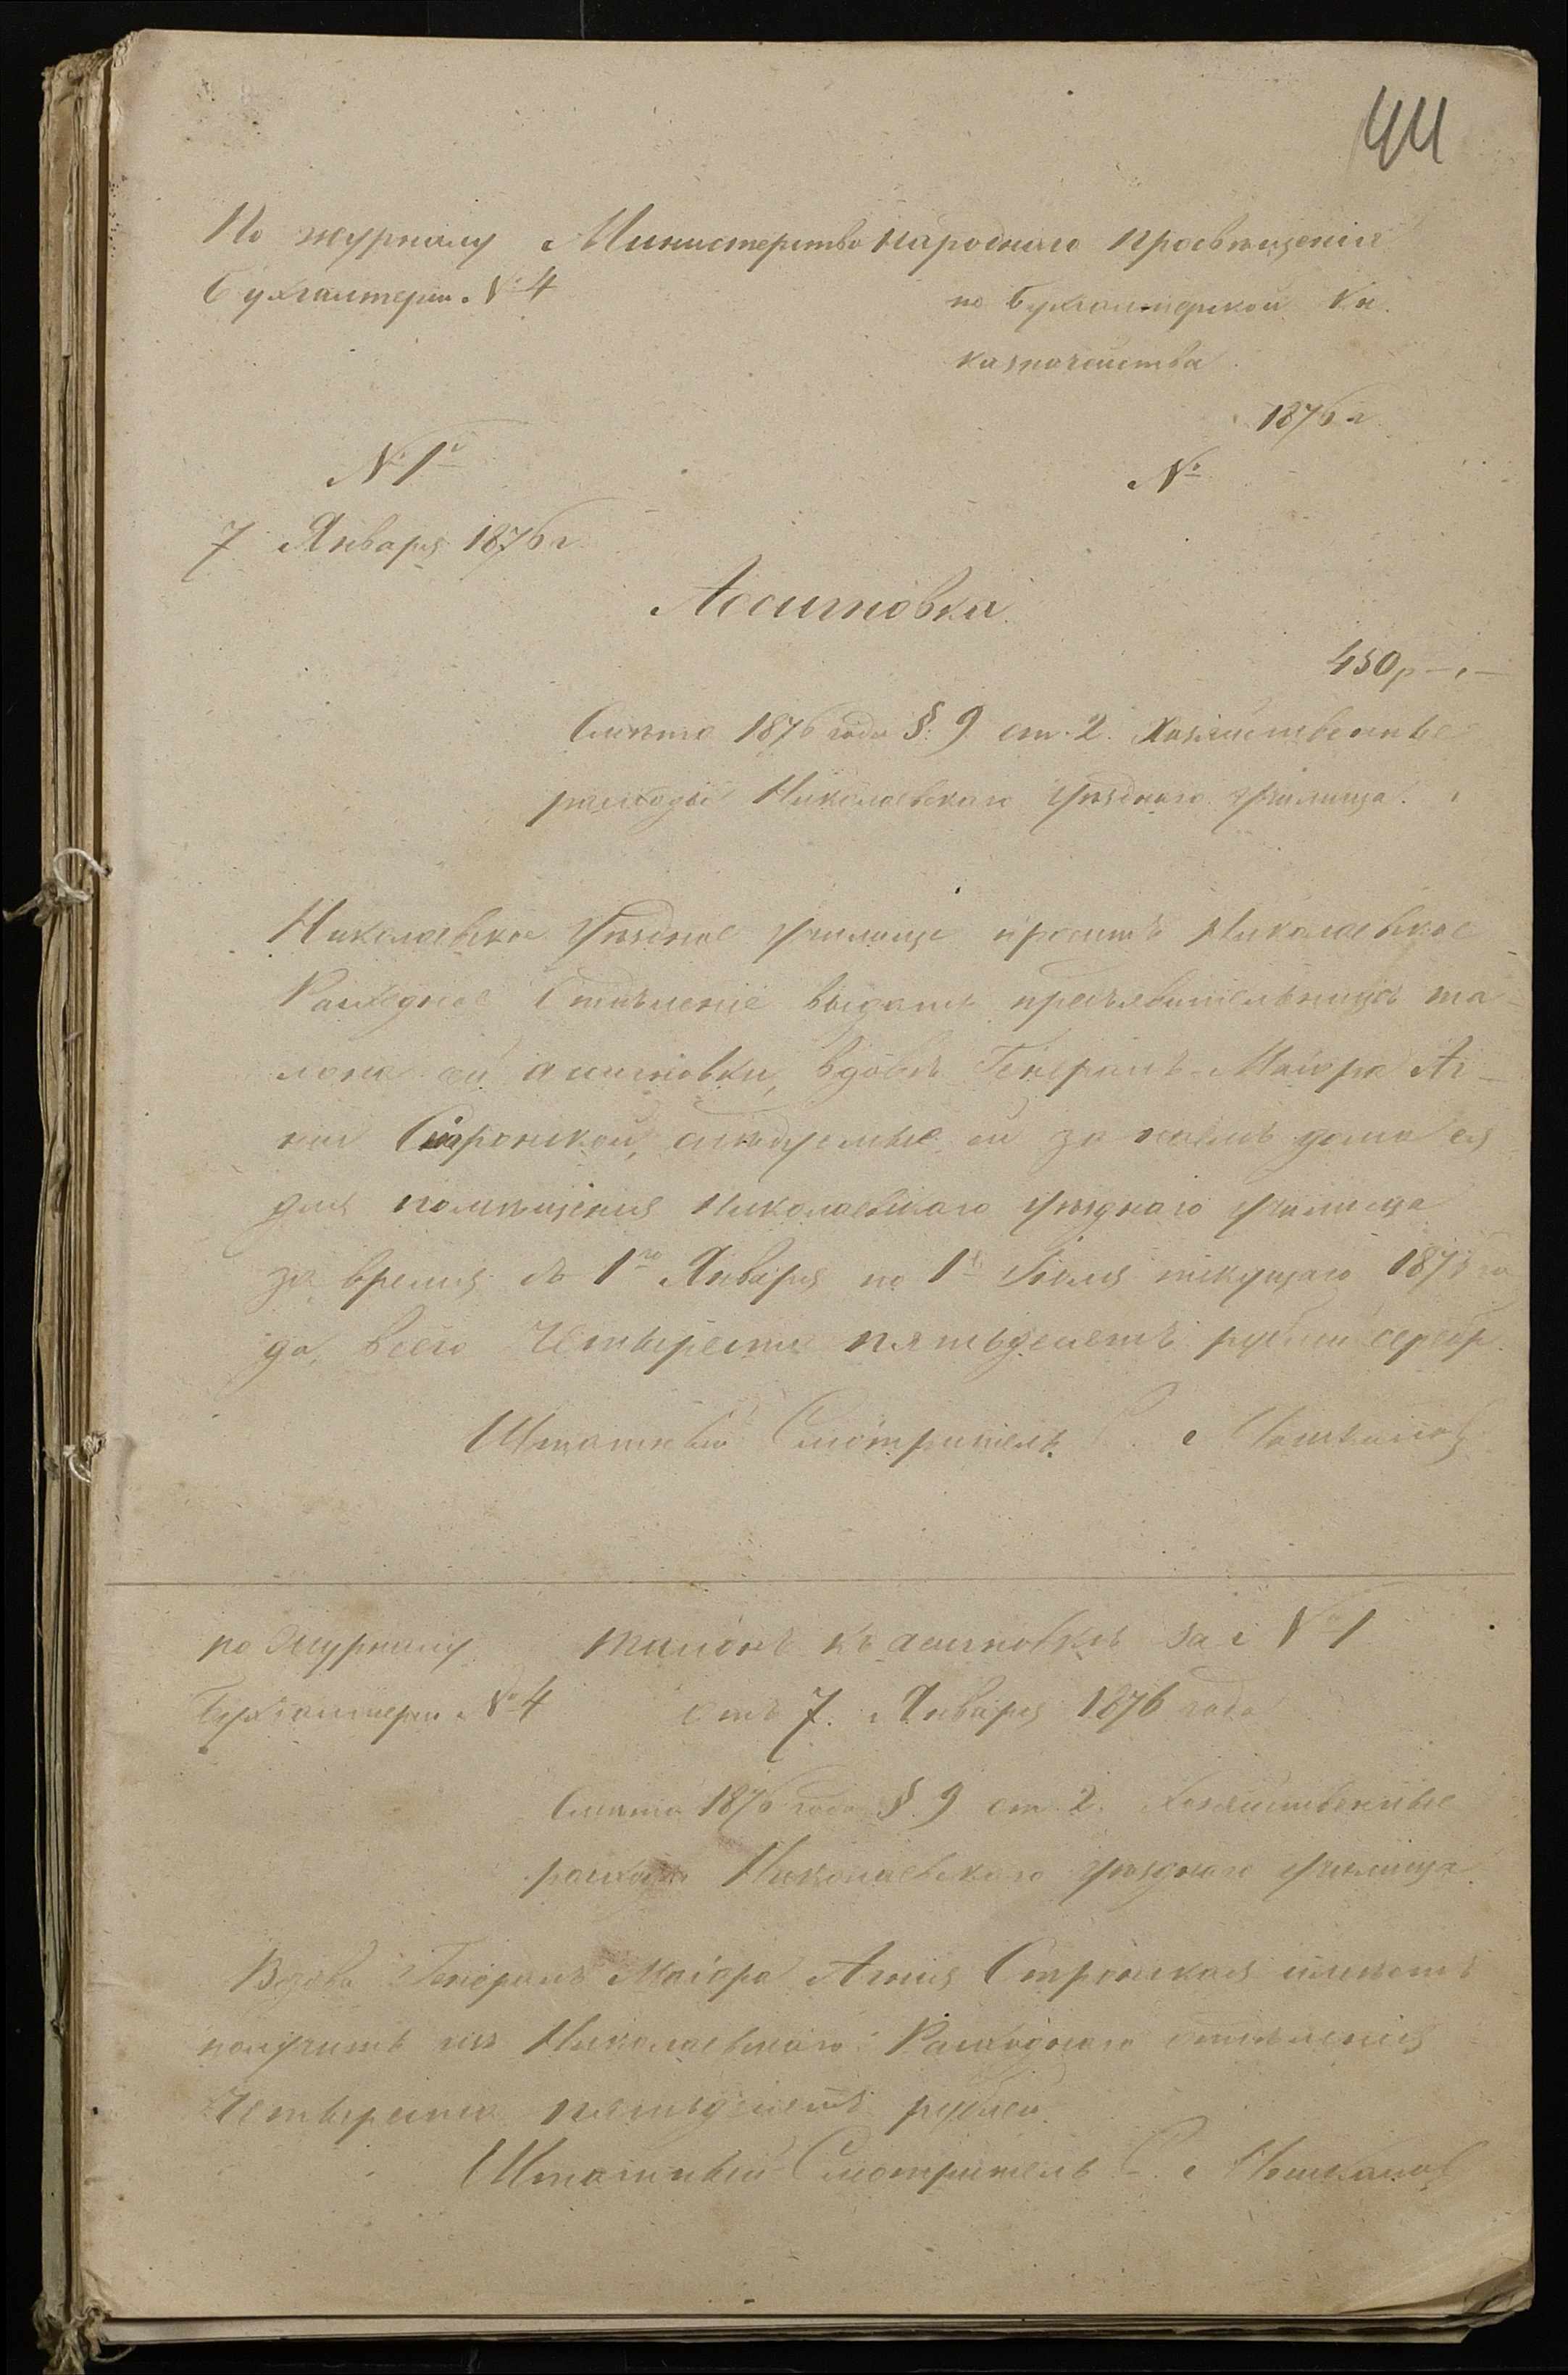 44
По журналу Министерство Народнаго Просвѣщенія
Бухгалтеріи № 4
по Бухгалтерской Кн.
казначейства
1876 г.
№ 1й
№
7 Января 1876 г.
Ассигновка.
450 р - „ -
Смѣта 1876 года § 9 ст. 2. Хозяйственные
расходы Николаевскаго Уѣзднаго Училища.
Николаевское Уѣздное Училище проситъ Николаевское
Расходное Отдѣленіе выдать предъявительницѣ та-
лона сей ассигновки, вдовѣ Генералъ-Маіора Ан-
нѣ Стронской, слѣдуемые ей за наемъ дома ея
для помѣщенія Николаевскаго Уѣзднаго Училища
за время съ 1го Января по 1е Іюля текущаго 1876 го
да, всего Четыреста пятьдесятъ рублей серебр.
Штатный Смотритель С.
по Журналу Талонъ къ асигновкѣ за № 1
Бухгалтеріи № 4 отъ 7. Января 1876 года
Смѣта 1876 года § 9 ст. 2. Хозяйственные
расходы Николаевскаго Уѣзднаго Училища
Вдова Генералъ Маіора Анна Стронская имѣетъ
получить изъ Николаевскаго Расходнаго отдѣленія
Четыреста пятьдесятъ рублей.
Штатный Смотритель С.